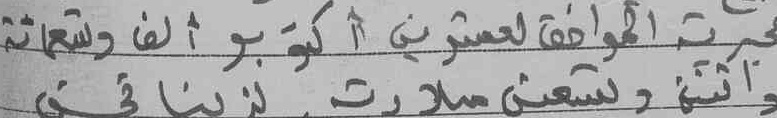 هجرية الموافق لعشرين أكتوبر ألف وتسعمائة
واثنين وتسعين ميلادية لزينا في